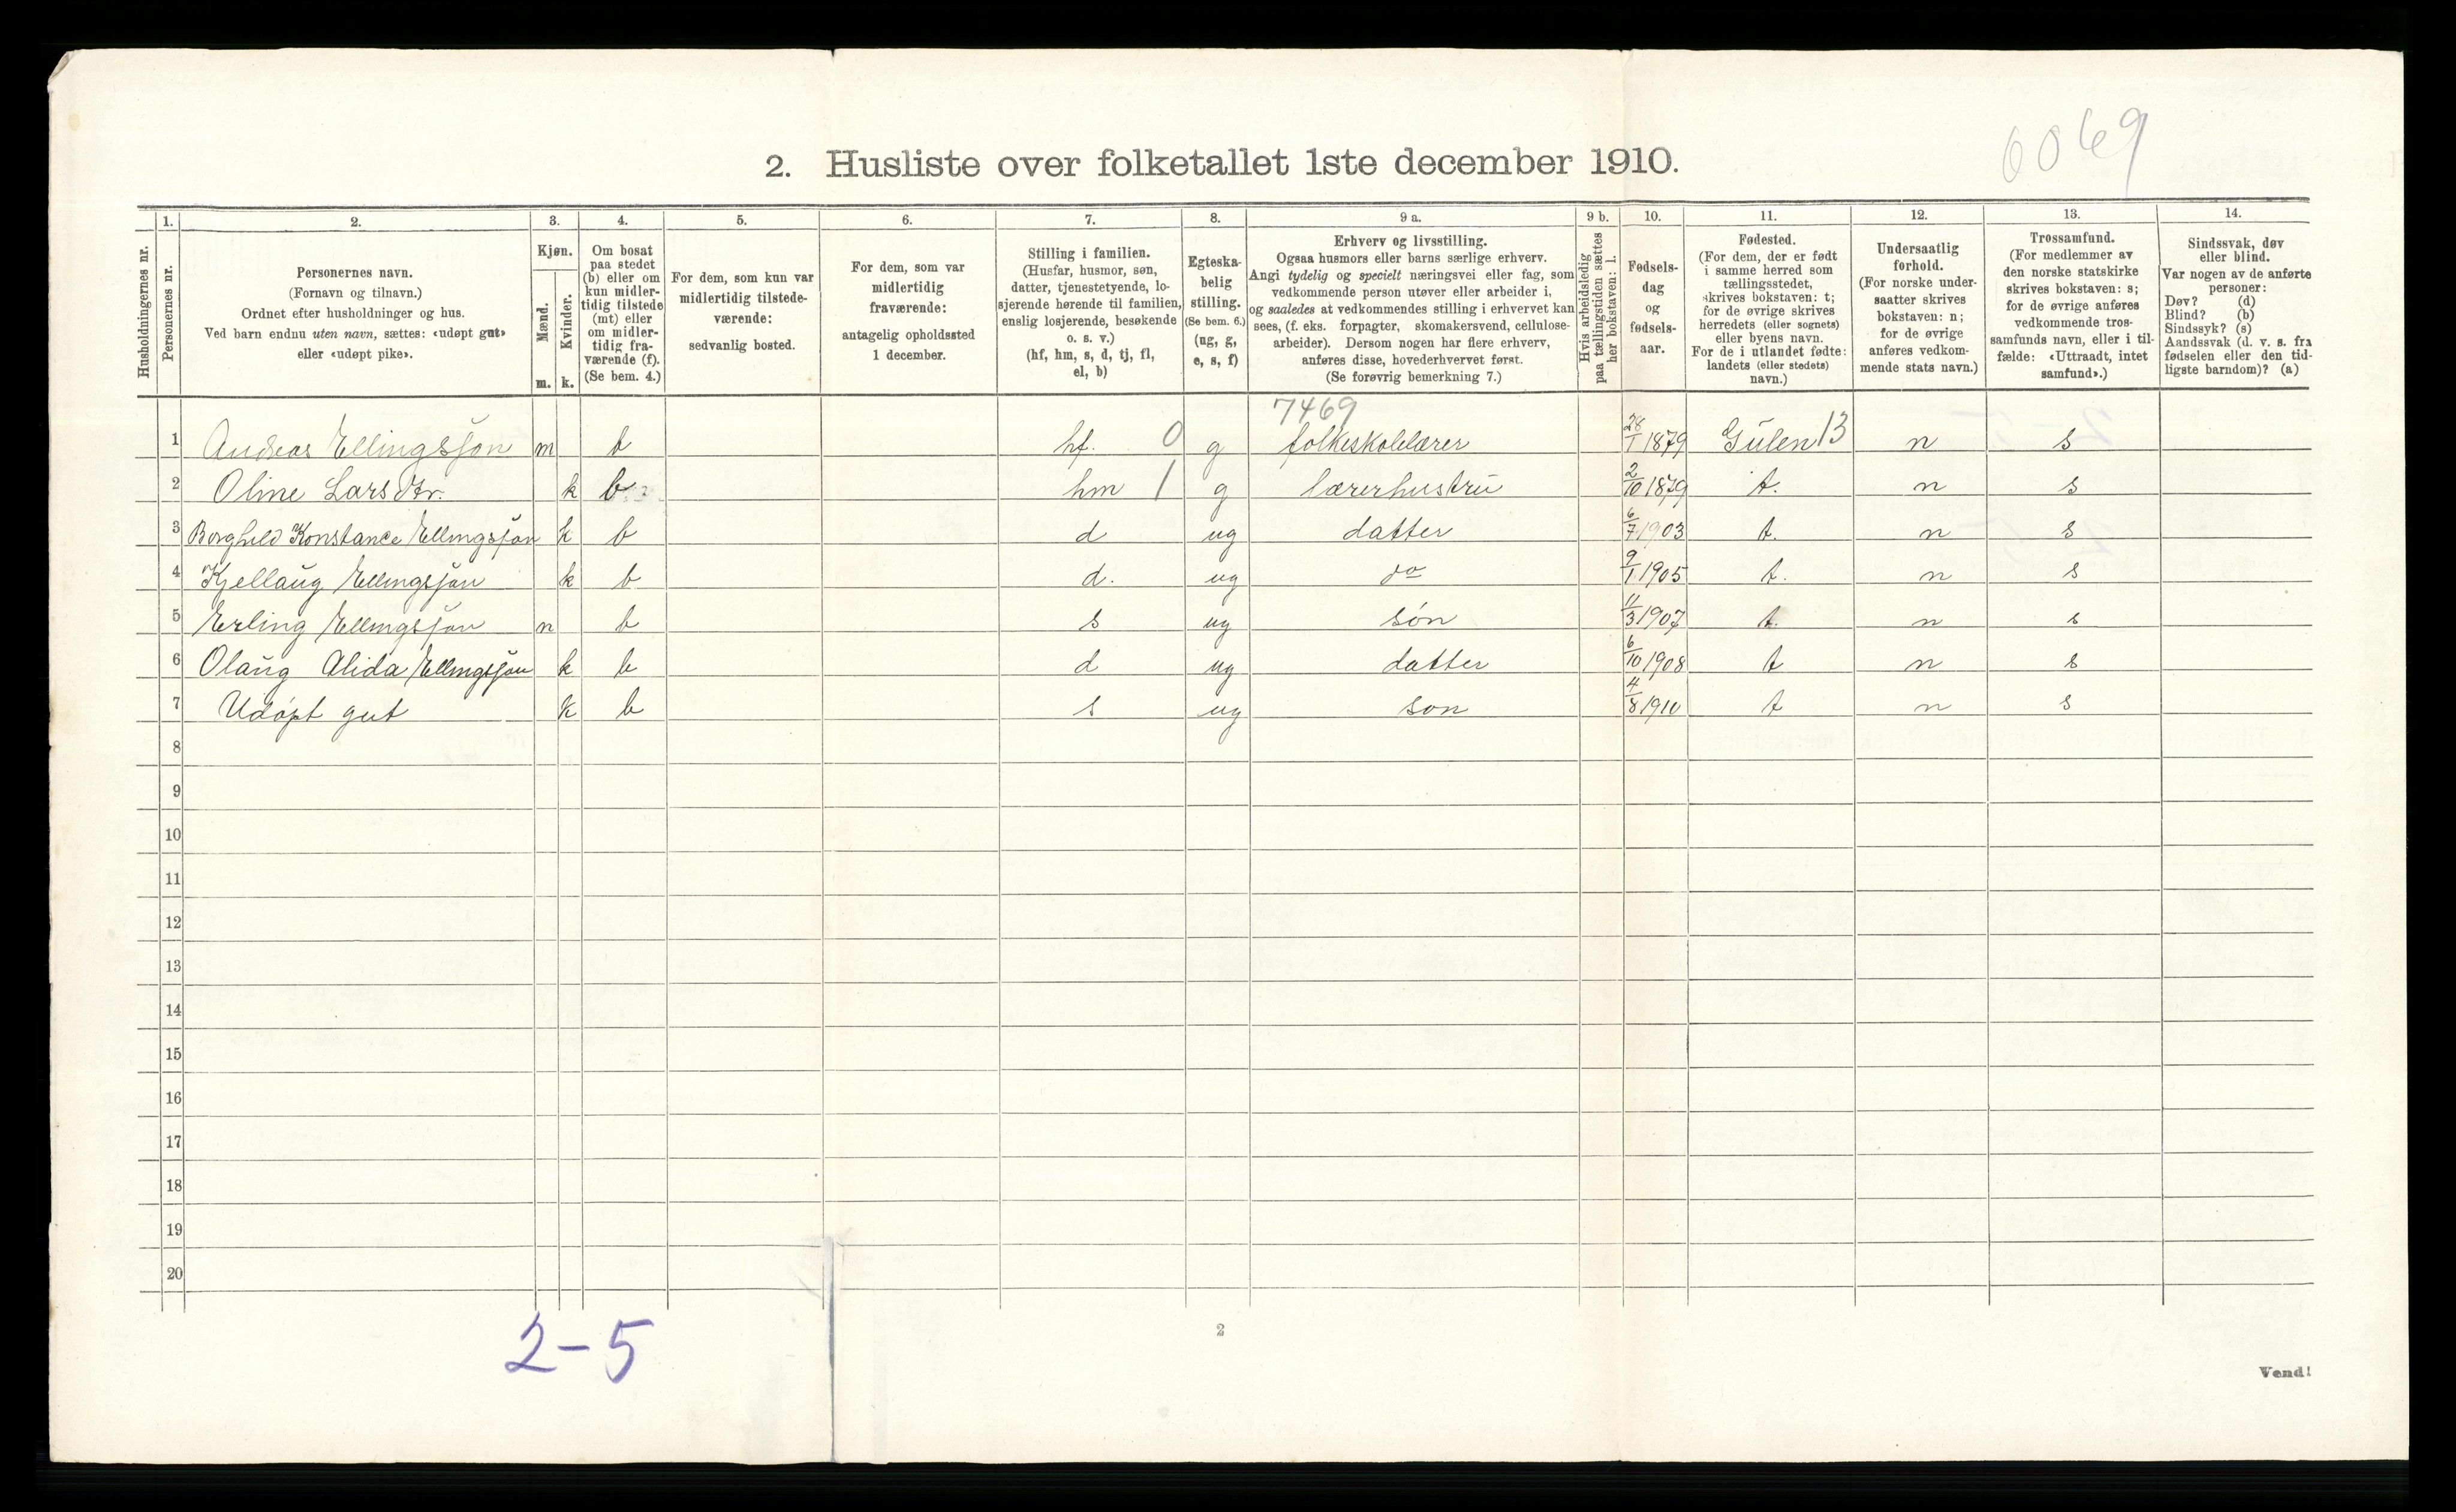 6069
2. Husliste over folketallet 1ste december 1910.
Husholdningernes nr.
1.
Personernes nr.
2.
Personernes navn.
(Fornavn og tilnavn.)
Ordnet efter husholdninger og hus.
Ved barn endnu uten navn, sættes: «udøpt gut»
eller «udøpt pike».
3.
Kjøn.
Mænd.
m.
Kvinder.
k.
4.
Om bosat
paa stedet
(b) eller om
kun midler-
tidig tilstede
(mt) eller
om midler-
tidig fra-
værende (f).
(Se bem. 4.)
5.
For dem, som kun var
midlertidig tilstede-
værende:
sedvanlig bosted.
6.
For dem, som var
midlertidig
fraværende:
antagelig opholdssted
1 december.
7.
Stilling i familien.
(Husfar, husmor, søn,
datter, tjenestetyende, lo-
sjerende hørende til familien,
enslig losjerende, besøkende
o. s. v.)
(hf, hm, s, d, tj, fl,
el, b)
8.
Egteska-
belig
stilling.
(Se bem. 6.)
(ug, g,
e, s, f)
9 a.
Erhverv og livsstilling.
Ogsaa husmors eller barns særlige erhverv.
Angi tydelig og specielt næringsvei eller fag, som
vedkommende person utøver eller arbeider i,
og saaledes at vedkommendes stilling i erhvervet kan
sees, (f. eks. forpagter, skomakersvend, cellulose-
arbeider). Dersom nogen har flere erhverv,
anføres disse, hovederhvervet først.
(Se forøvrig bemerkning 7.)
9 b.
Hvis arbeidsledig
paa tællingstiden sættes
her bokstaven: l.
10.
Fødsels-
dag
og
fødsels-
aar.
11.
Fødested.
(For dem, der er født
i samme herred som
tællingsstedet,
skrives bokstaven: t;
for de øvrige skrives
herredets (eller sognets)
eller byens navn.
For de i utlandet fødte:
landets (eller stedets)
navn.)
12.
Undersaatlig
forhold.
(For norske under-
saatter skrives
bokstaven: n;
for de øvrige
anføres vedkom-
mende stats navn.)
13.
Trossamfund.
(For medlemmer av
den norske statskirke
skrives bokstaven: s;
for de øvrige anføres
vedkommende tros-
samfunds navn, eller i til-
fælde: «Uttraadt, intet
samfund».)
14.
Sindssvak, døv
eller blind.
Var nogen av de anførte
personer:
Døv? (d)
Blind? (b)
Sindssyk? (s)
Aandssvak (d. v. s. fra
fødselen eller den tid-
ligste barndom)? (a)
7469
1 Andreas Ellingsjon m b hf. 0 g folkeskolelærer 28/1 1879 Gulen 13 n s
2 Oline Lars dtr. k b hm 1 g lærerhustru 2/10 1879 t. n s
3 Borghild Konstance Ellingsjon k b d ug datter 6/7 1903 t. n s
4 Kjellaug Ellingsjon k b d. ug do 9/1 1905 t. n s
5 Erling Ellingsjon m b s ug søn 11/3 1907 t. n s
6 Olaug Alida Ellingsjon k b d ug datter 6/10 1908 t n s
7 Udøpt gut k b s ug son 4/8 1910 t n s
8
9
10
11
12
13
14
15
16
17
18
19
20
2-5
2
Vend!